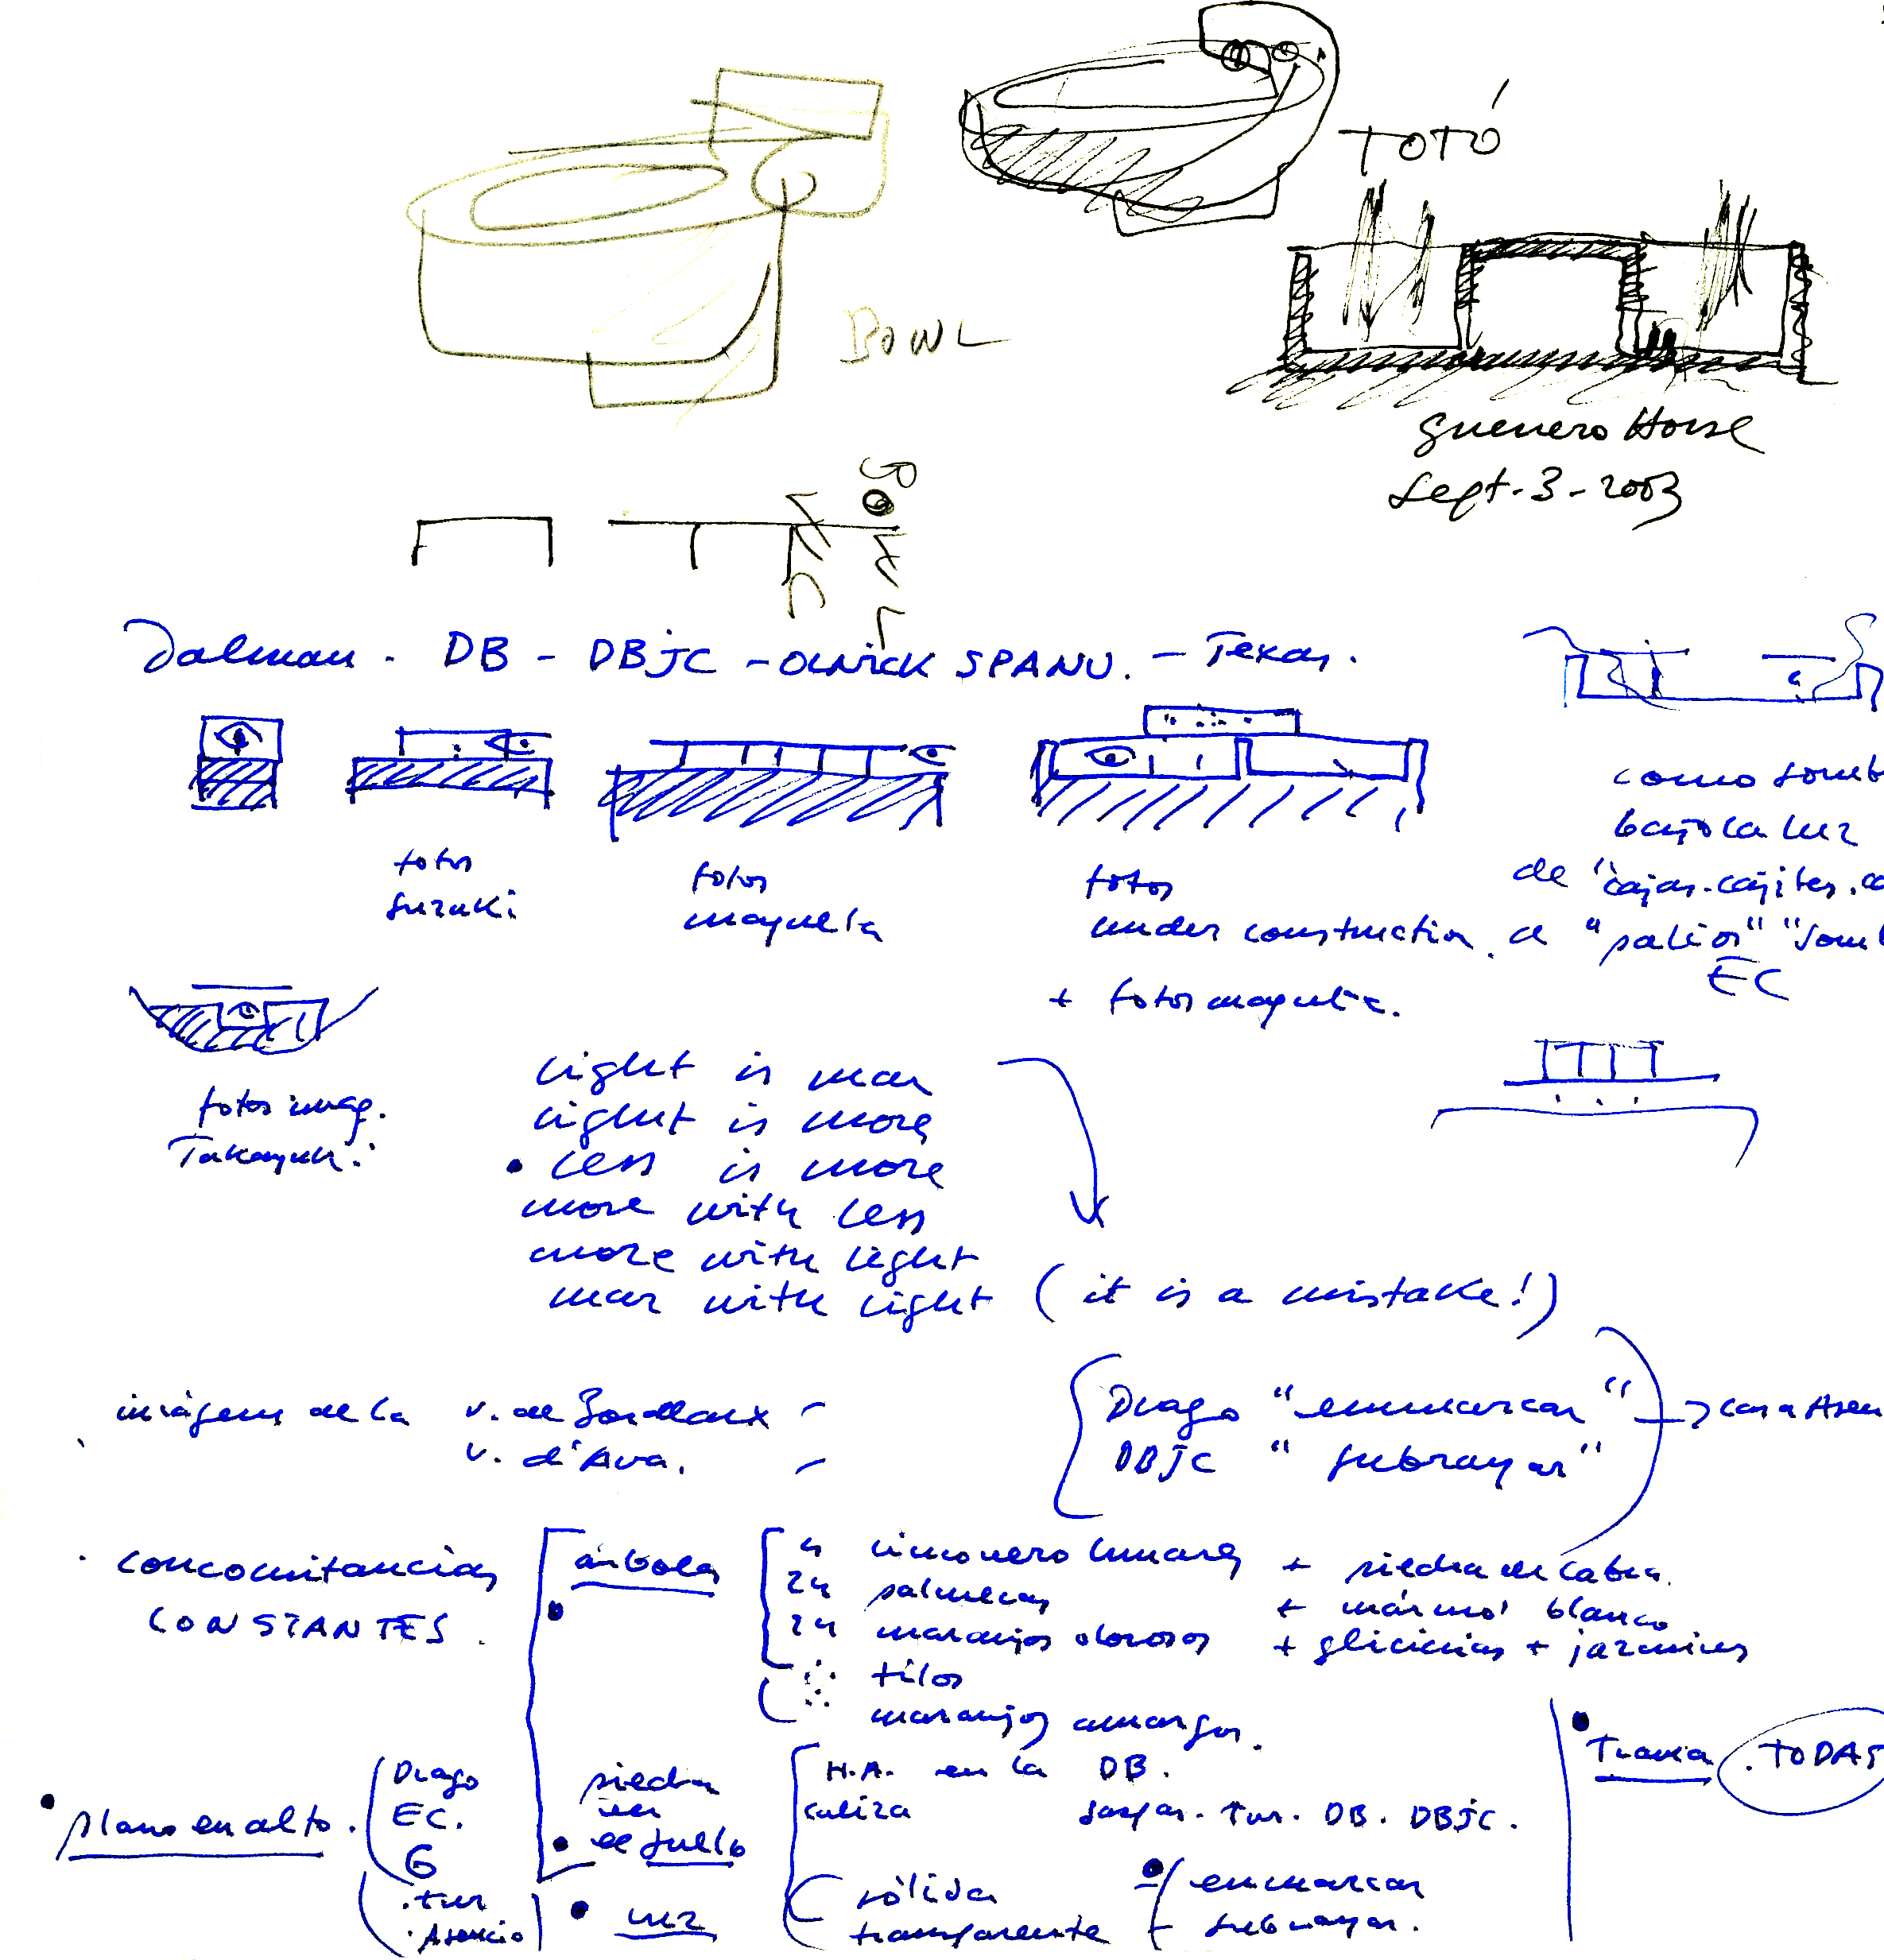 TOTÓ
BOWL
Guerrero House
Sept-3-2003
Dalmau - DB - DBJC - OLNICK SPANU. - Texas.
como
bajo la luz
de "cajas-cajitas.
fotos
Suzuki
fotos
maqueta
fotos
under construction
"patios"
EC
+ fotos maqueta.
fotos imag.
Takayuki
light is mar
light is more
• less is more
more with less
more with light
mar with light (it is a mistake!)
imágenes de la v. de Bordeaux
v. d'Ava.
Drago "enmarcar"
DBJC "subrayar"
concomitancias
CONSTANTES.
árboles
4 limonero lunares + piedra de Cabra.
24 palmeras + mármol blanco
24 maranjos olorosos + glicinias + jazmines
tilos
maranjos amargos.
• plano en alto.
Drago
EC.
G
.tur
.Asencio
piedra
en
• el suelo
H.A. en la DB.
caliza Gaspar. Tur. DB. DBJC.
• luz
sólida
transparente
• enmarcar
subrayar.
• Trama . TODAS